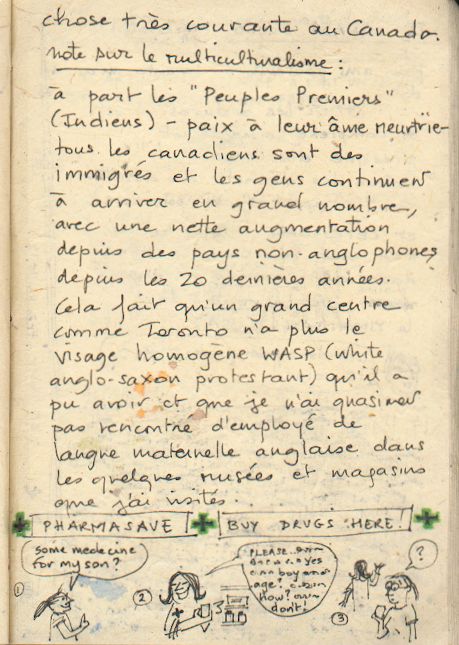 chose très courante au Canada.
note sur le multiculturalisme :
à part les "Peuples Premiers"
(Indiens) - paix à leur âme meurtrie -
tous les canadiens sont des
immigrés et les gens continuent
à arriver en grand nombre,
avec une nette augmentation
depuis des pays non-anglophones
depuis les 20 dernières années.
Cela fait qu'un grand centre
comme Toronto n'a plus le
visage homogène WASP (white
anglo-saxon protestant) qu'il a
pu avoir et que je n'ai quasiment
pas rencontré d'employé de
langue maternelle anglaise dans
les quelques musées et magasins
que j'ai visités..
PHARMASAVE BUY DRUGS HERE!
some medecine
for my son?
PLEASE..
yes
boy
age?
How?
dont!
?
1
2
3